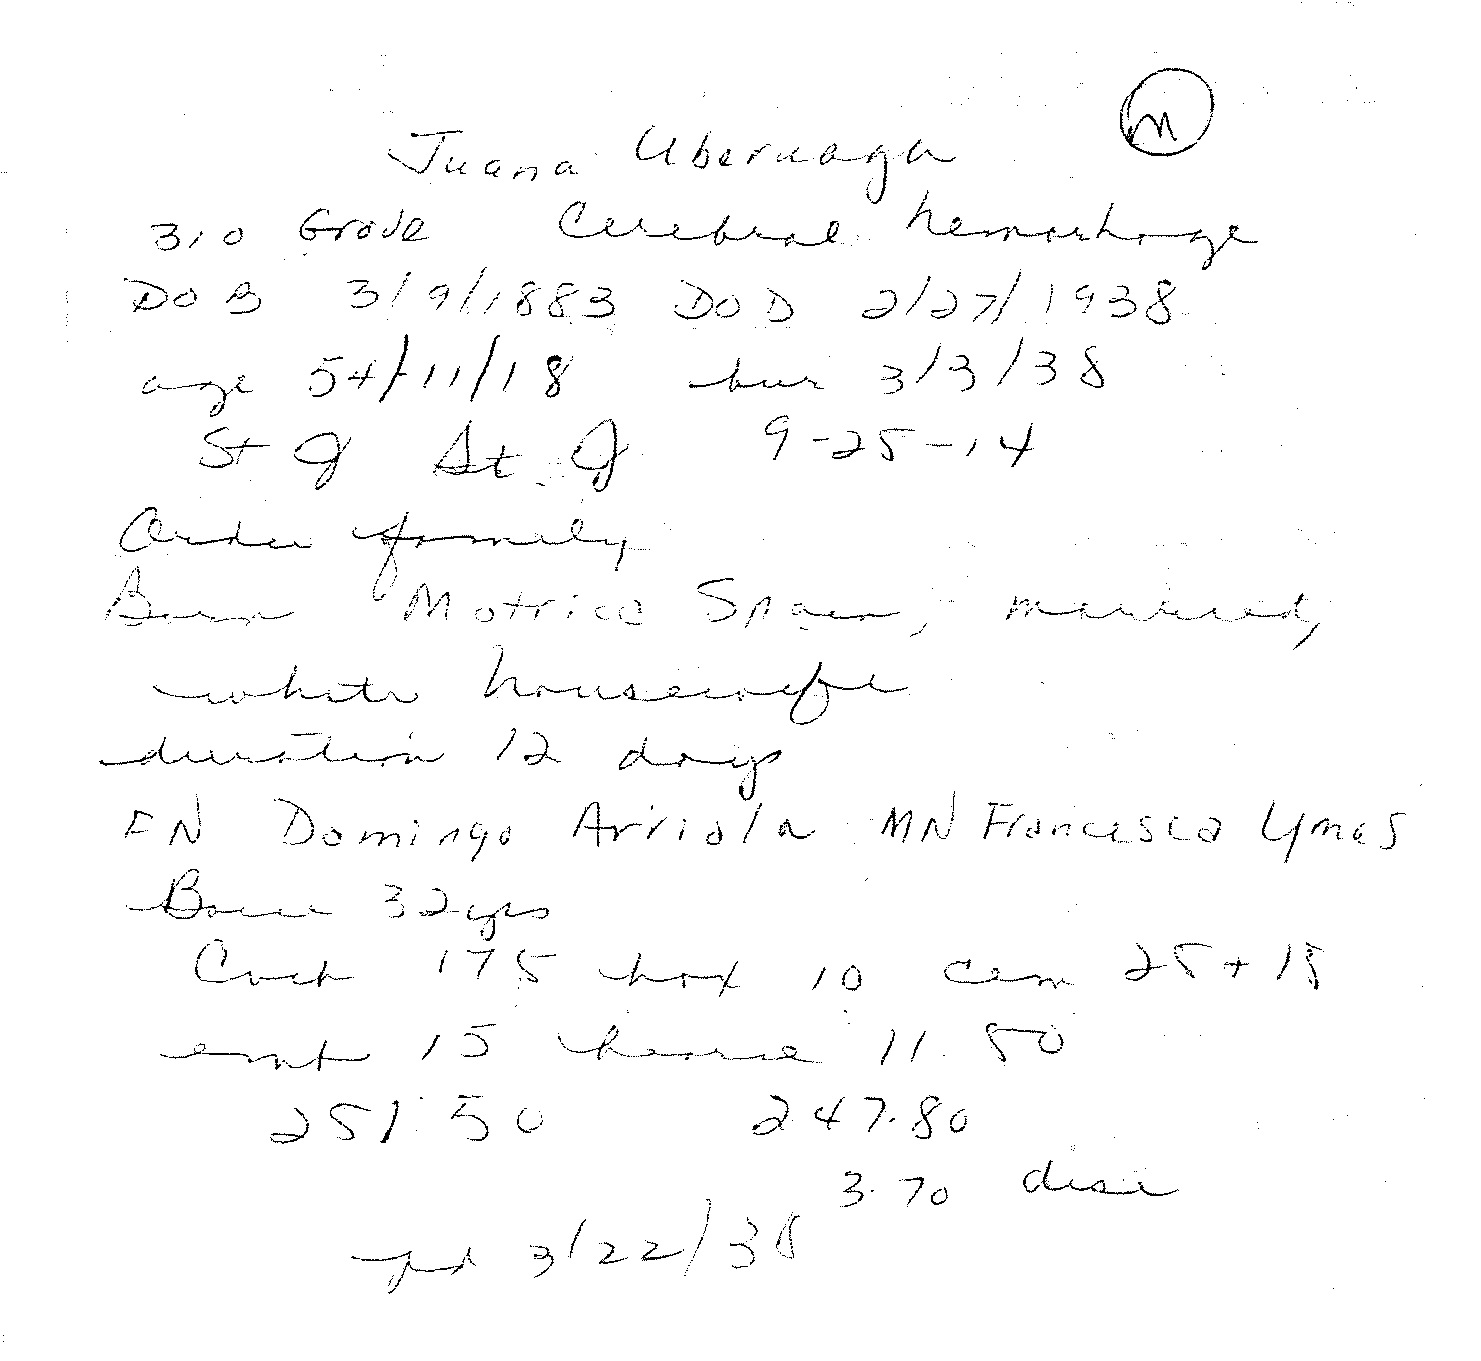 M
Juana Uberuaga
310 Grove Cerebral hemorhage
DOB 3/9/1883 DOD 2/27/1938
age 54/11/18 bur 3/3/38
St J St. J 9-25-14
Order family
Born Motrico Spain, married,
white housewife
duration 12 days
FN Domingo Arriola MN Francesca Ymas
Boise 32 yrs
Cask 175 box 10 cem 25 + 15
emb 15 hearse 11.50
251.50 247.80
3.70 disc
pd 3/22/38